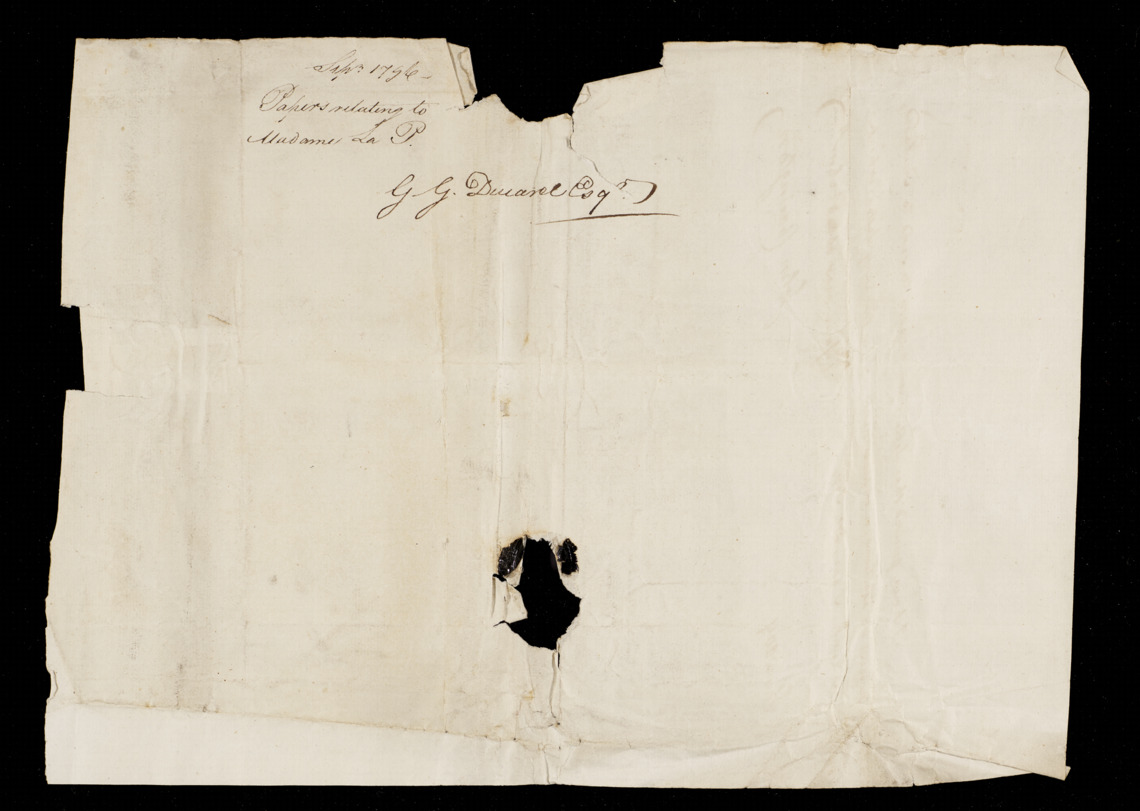 Sepr. 1796 -
Papers relating to
Madame La P.
G. G. Ducarel Esqr.